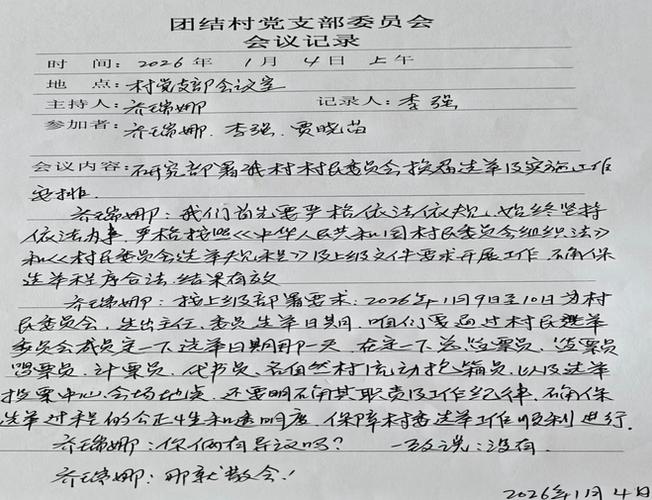 团结村党支部委员会
会议记录
时 间：2026年 1月 4日 上午
地 点：村党支部会议室
主持人：乔瑞娜 记录人：李强
参加者：乔瑞娜、李强、贾晓苗
会议内容：研究部署我村村民委员会换届选举及实施工作
安排.
乔瑞娜：我们首先要严格依法依规、始终坚持
依法办事，严格按照《中华人民共和国村民委员会组织法》
和《村民委员会选举规程》及上级文件要求开展工作，确保
选举程序合法，结果有效
乔瑞娜：按上级部署要求：2026年1月9日至10日为村
民委员会，选出主任、委员选举日期，咱们要通过村民选举
委员会成员定一下选举日期那一天，在定一下总监票员、监票员
唱票员、计票员、代书员、各自然村流动抱箱员，以及选举
投票中心会场地点，还要明确其职责及工作纪律，确保
选举过程的公正性和透明度，保障村委选举工作顺利进行.
乔瑞娜：你们有异议吗？ 一致说：没有.
乔瑞娜：那就散会！
2026年1月4日